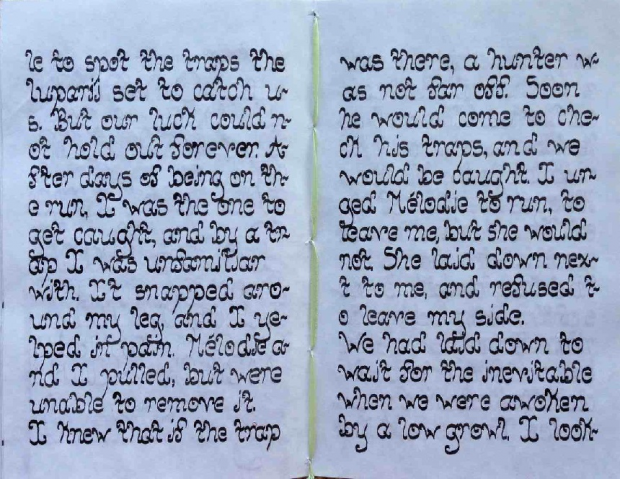 le to spot the traps the
luparii set to catch u-
s. But our luck could n-
ot hold out forever. A-
fter days of being on th-
e run, I was the one to
get caught, and by a tr-
ap I was unfamiliar
with. It snapped aro-
und my leg, and I ye-
lped in pain. Mélodie a-
nd I pulled, but were
unable to remove it.
I knew that if the trap
was there, a hunter w-
as not far off. Soon
he would come to che-
ck his traps, and we
would be caught. I ur-
ged Mélodie to run, to
leave me, but she would
not. She laid down nex-
t to me, and refused t-
o leave my side.
We had laid down to
wait for the inevitable
when we were awoken
by a low growl. I look-